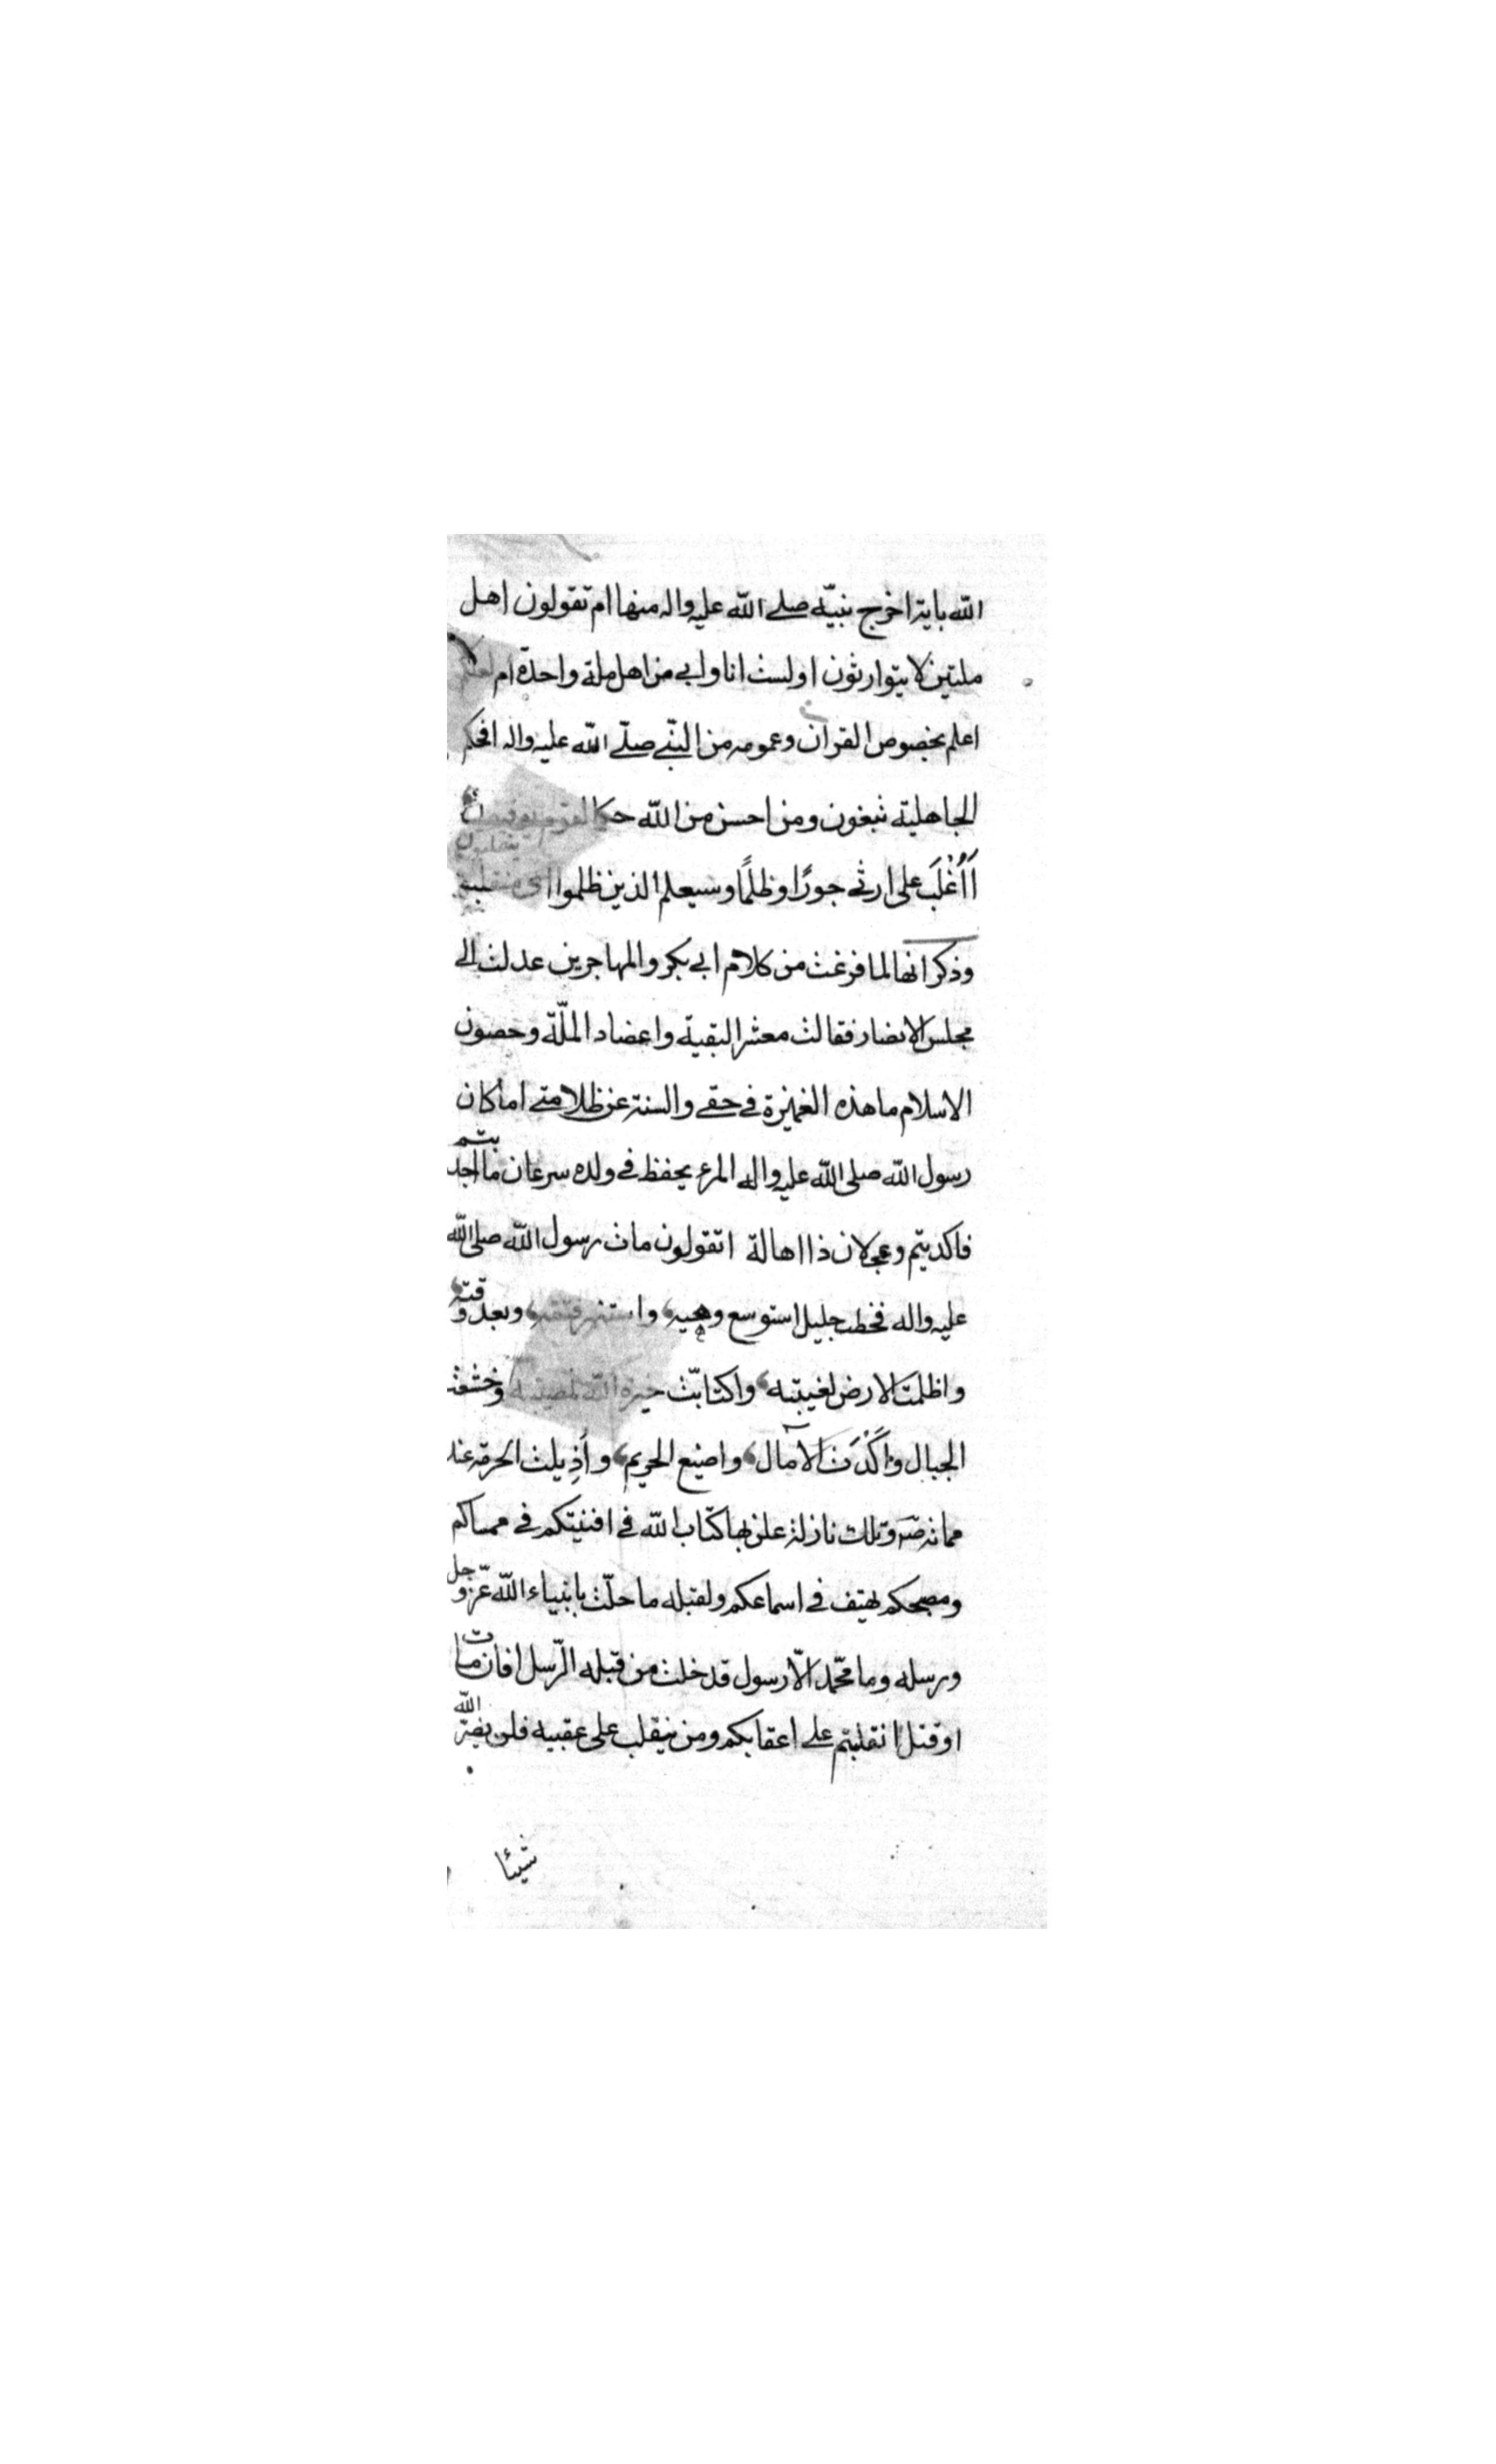 الله باية اخرج نبيّه صلى الله عليه واله منها ام تقولون اهل
ملتين لا يتوارثون اولست انا وابي من اهل ملة واحدة ام لعلكم
اعلم بخصوص القرآن وعمومه من النبّي صلّى الله عليه واله افحكم
الجاهلية تبغون ومن احسن من الله حكما لقوم يوقنون
أَأُغْلَبَ على ارثي جورًا وظلمًا وسيعلم الذين ظلموا اى منقلب ينقلبون
وذكر انها لما فرغت من كلام ابي بكر والمهاجرين عدلت الى
مجلس الانصار فقالت معشر البقية واعضاد الملّة وحصون
الاسلام ما هذه الغميزة في حقي والسنة عن ظلامتي اما كان
رسول الله صلى الله عليه واله المرء يحفظ في ولده سرعان ما اجدبتم
فاكديتم وعجلان ذا اهالة اتقولون مات رسول الله صلى الله
عليه واله فخطب جليل استوسع وهيه واستنهر فتقه وبعد وقته
واظلمت الارض لغيبته واكتأبّت خيرة الله لمصيبته وخشعت
الجبال وَاَكْدَت الآمال واضيع الحريم وأُذِيلت الحرمة عند
مماته صَ وتلك نازلة علن بها كتاب الله في افنيتكم في ممساكم
ومصبحكم يهتف في اسماعكم ولقبله ما حلّت بانبياء الله عزّ وجل
ورسله وما محمّد الّا رسول قد خلت من قبله الرّسل افان مات
او قتل انقلبتم على اعقابكم ومن ينقلب على عقبيه فلن يضرّ الله
شيئا